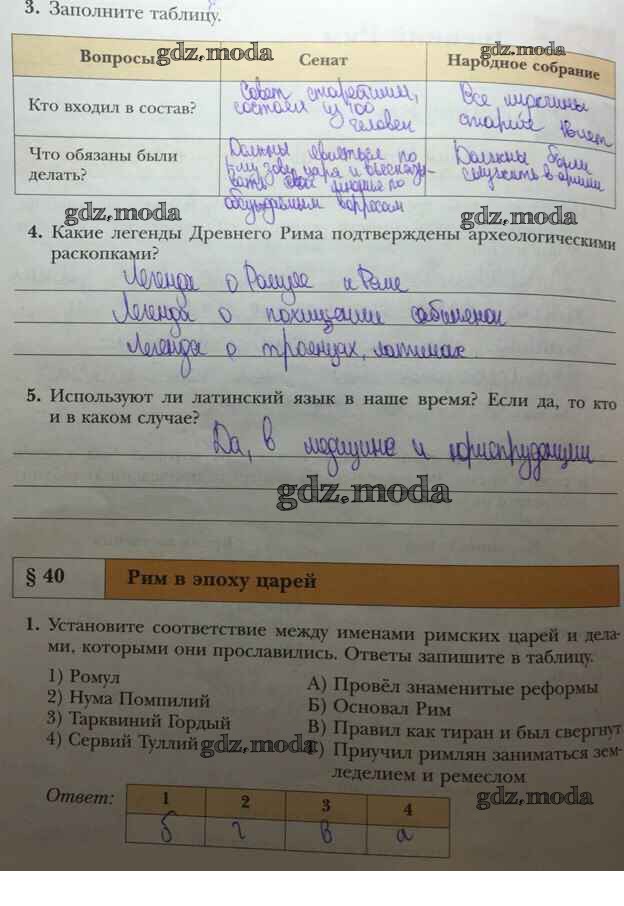 3. Заполните таблицу.
gdz.moda
gdz.moda
Вопросы
Сенат
Народное собрание
Кто входил в состав?
Совет старейшин,
состоял из 100
человек
Все мужчины
старше
Что обязаны были
делать?
Должны являться по
зову царя и высказы-
вать своё мнение по
обсуждаемым вопросам
Должны были
служить в армии
gdz.moda
gdz.moda
4. Какие легенды Древнего Рима подтверждены археологическими
раскопками?
Легенда о Ромуле и Реме
Легенда о похищении сабинянок
Легенда о троянцах, латинах.
5. Используют ли латинский язык в наше время? Если да, то кто
и в каком случае?
Да, в медицине и юриспруденции
gdz.moda
§ 40 Рим в эпоху царей
1. Установите соответствие между именами римских царей и дела-
ми, которыми они прославились. Ответы запишите в таблицу.
1) Ромул
2) Нума Помпилий
3) Тарквиний Гордый
4) Сервий Туллий
gdz.moda
А) Провёл знаменитые реформы
Б) Основал Рим
В) Правил как тиран и был свергнут
Г) Приучил римлян заниматься зем-
леделием и ремеслом
gdz.moda
Ответ:
1 2 3 4
б г в а